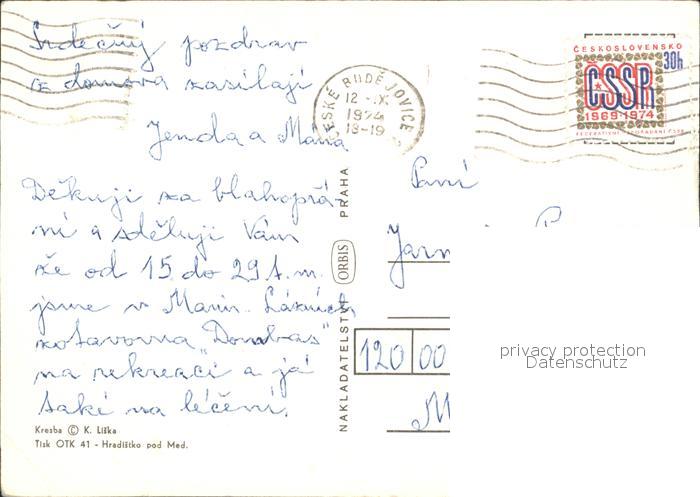 Srdečný pozdrav
z domova zasílají
Jenda a Máňa
Děkuji za blahopřá-
ní a sděluji Vám
že od 15. do 29. t. m.
jsme v Marin. Lázních
zotavovna „Donbas"
na rekreaci a já
také na léčení.
Kresba © K. Liška
Tisk OTK 41 - Hradištko pod Med.
NAKLADATELSTVÍ ORBIS PRAHA
ČESKÉ BUDĚJOVICE
12.-IX.
1974
18-19
ČESKOSLOVENSKO
30h
ČSSR
1969-1974
FEDERATIVNÍ USPOŘÁDÁNÍ ČSSR
Paní
Jarm
120 00
privacy protection
Datenschutz